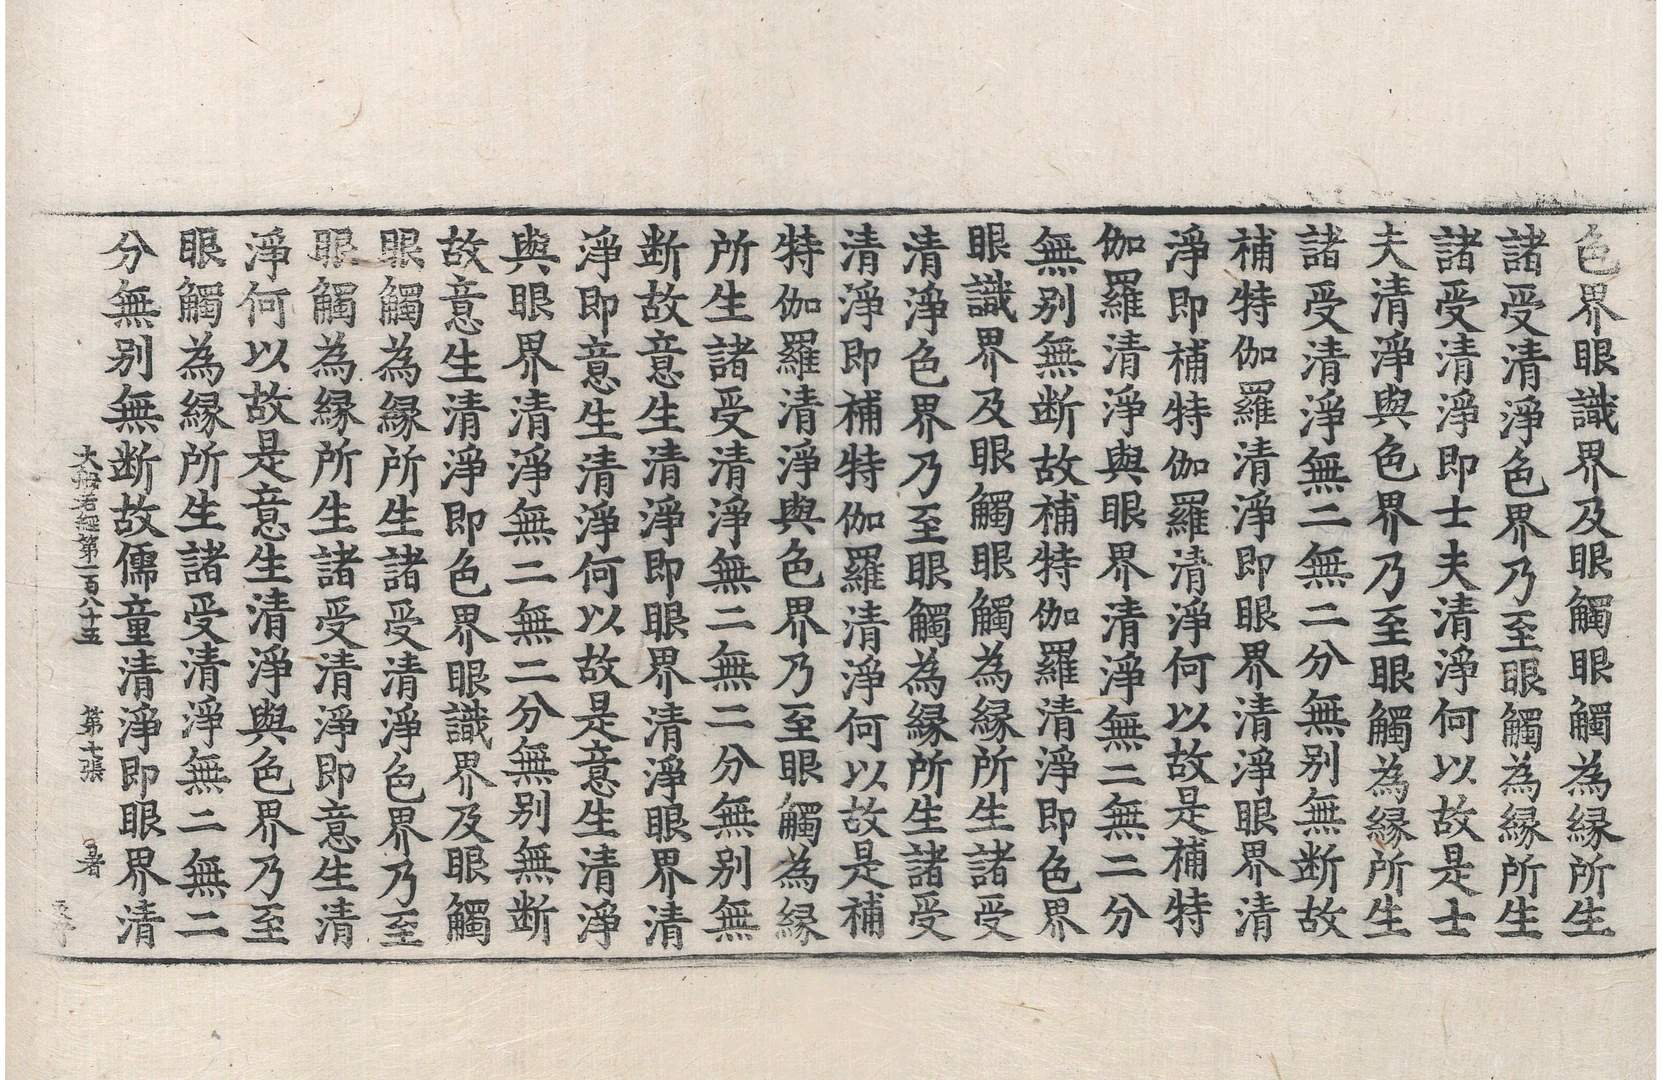 色界眼識界及眼觸眼觸為縁所生
諸受清淨色界乃至眼觸為縁所生
諸受清淨即士夫清淨何以故是士
夫清淨與色界乃至眼觸為縁所生
諸受清淨無二無二分無别無断故
補特伽羅清淨即眼界清淨眼界清
淨即補特伽羅清淨何以故是補特
伽羅清淨與眼界清淨無二無二分
無别無断故補特伽羅清淨即色界
眼識界及眼觸眼觸為縁所生諸受
清淨色界乃至眼觸為縁所生諸受
清淨即補特伽羅清淨何以故是補
特伽羅清淨與色界乃至眼觸為縁
所生諸受清淨無二無二分無别無
断故意生清淨即眼界清淨眼界清
淨即意生清淨何以故是意生清淨
與眼界清淨無二無二分無别無断
故意生清淨即色界眼識界及眼觸
眼觸為縁所生諸受清淨色界乃至
眼觸為縁所生諸受清淨即意生清
淨何以故是意生清淨與色界乃至
眼觸為縁所生諸受清淨無二無二
分無别無断故儒童清淨即眼界清
大般若經第一百八十五 第七張 暑